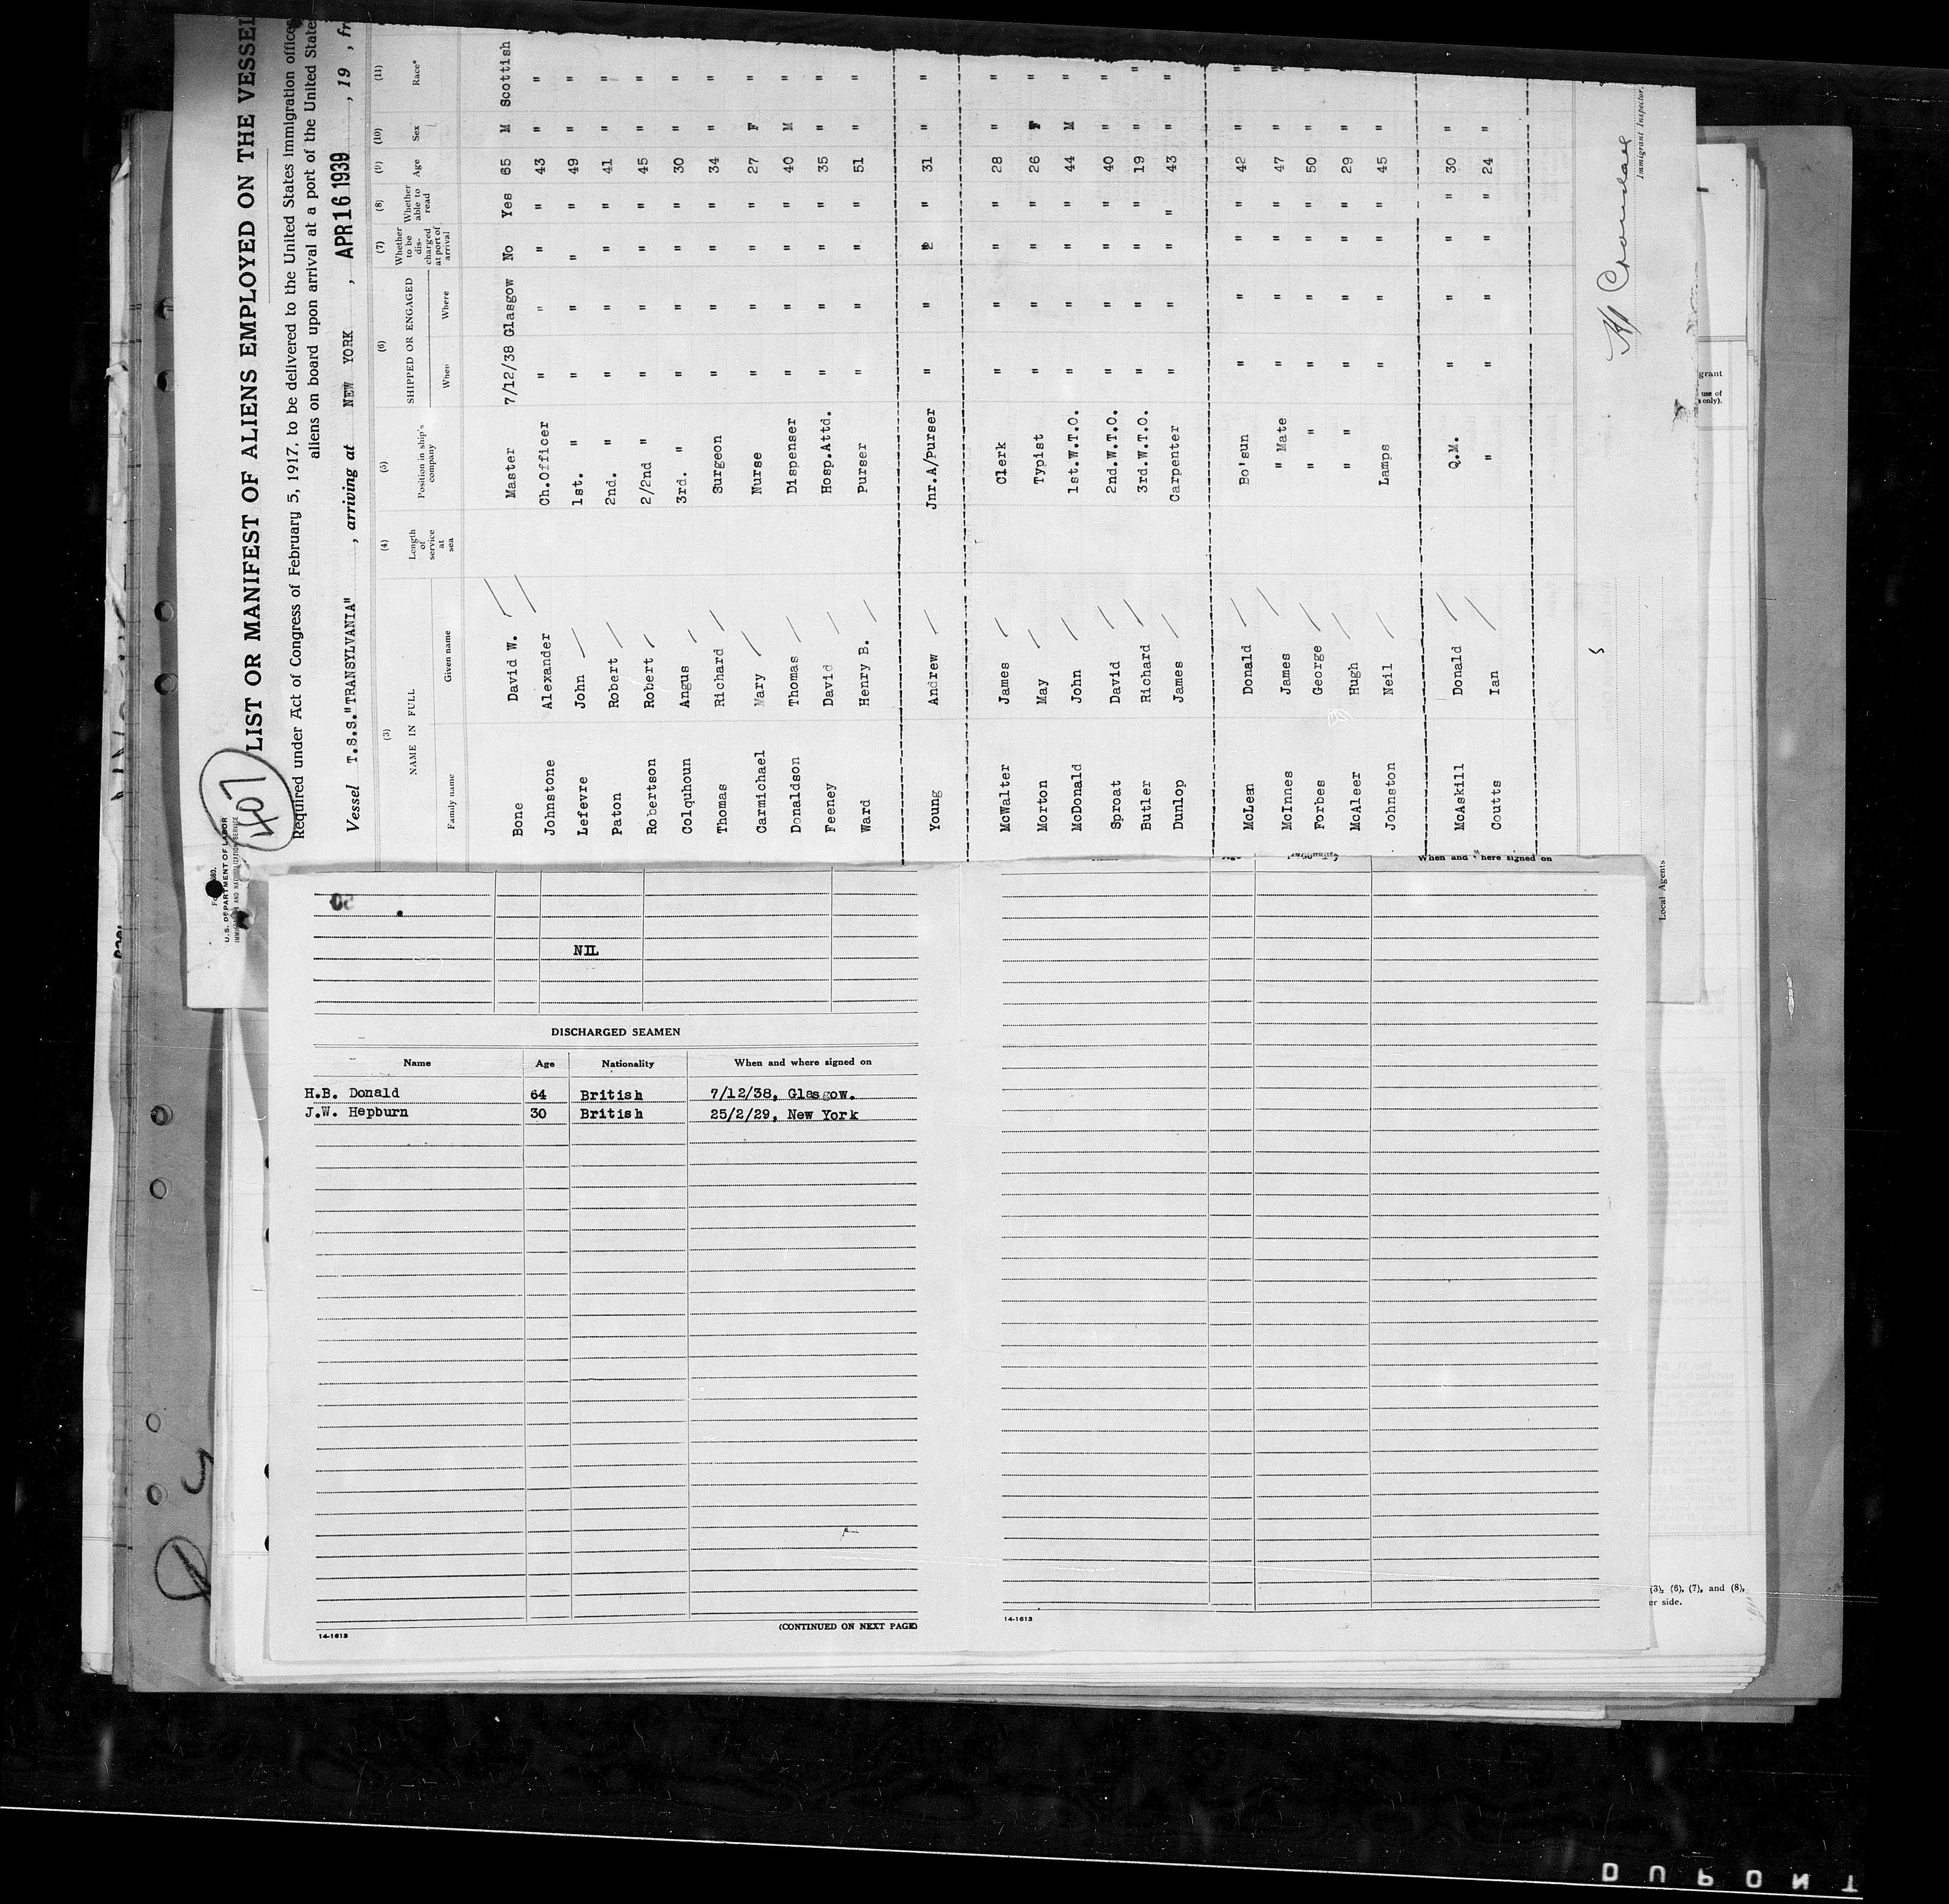 407
U.S. DEPARTMENT OF LABOR
IMMIGRATION AND NATURALIZATION SERVICE
LIST OR MANIFEST OF ALIENS EMPLOYED ON THE VESSEL
Required under Act of Congress of February 5, 1917, to be delivered to the United States immigration officer
aliens on board upon arrival at a port of the United States
Vessel T.S.S."TRANSYLVANIA" , arriving at NEW YORK , APR 16 1939 , 19 , fr
(3) (4) (5) (6) (7) (8) (9) (10) (11)
NAME IN FULL Length of service at sea Position in ship's company SHIPPED OR ENGAGED Whether to be discharged at port of arrival Whether able to read Age Sex Race*
Family name Given name When Where
Bone David W. Master 7/12/38 Glasgow No Yes 65 M Scottish
Johnstone Alexander Ch.Officer " " " " 43 " "
Lefevre John 1st. " " " " " 49 " "
Paton Robert 2nd. " " " " " 41 " "
Robertson Robert 2/2nd " " " " " 45 " "
Colquhoun Angus 3rd. " " " " " 30 " "
Thomas Richard Surgeon " " " " 34 " "
Carmichael Mary Nurse " " " " 27 F "
Donaldson Thomas Dispenser " " " " 40 M "
Feeney David Hosp.Attd. " " " " 35 " "
Ward Henry B. Purser " " " " 51 " "
Young Andrew Jnr.A/Purser " " " " 31 " "
McWalter James Clerk " " " " 28 " "
Morton May Typist " " " " 26 F "
McDonald John 1st.W.T.O. " " " " 44 M "
Sproat David 2nd.W.T.O. " " " " 40 " "
Butler Richard 3rd.W.T.O. " " " " 19 " "
Dunlop James Carpenter " " " " 43 " "
McLean Donald Bo'sun " " " " 42 " "
McInnes James " Mate " " " " 47 " "
Forbes George " " " " " " 50 " "
McAleer Hugh " " " " " " 29 " "
Johnston Neil Lamps " " " " 45 " "
McAskill Donald Q.M. " " " " 30 " "
Coutts Ian " " " " " 24 " "
Immigrant Inspector.
Local Agents
NIL
DISCHARGED SEAMEN
Name Age Nationality When and where signed on
H.B. Donald 64 British 7/12/38, Glasgow.
J.W. Hepburn 30 British 25/2/29, New York
(CONTINUED ON NEXT PAGE)
14-1613
When and where signed on
14-1613
grant
use of
only).
(3), (6), (7), and (8),
er side.
DUPONT